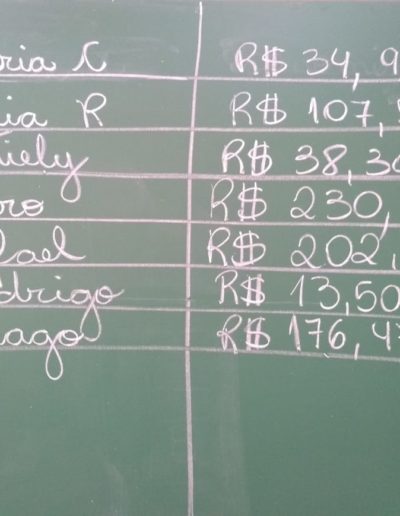 ria X R$ 34,9
ia R R$ 107,
iely R$ 38,30
ro R$ 230,
ael R$ 202,
drigo R$ 13,50
ago R$ 176,4